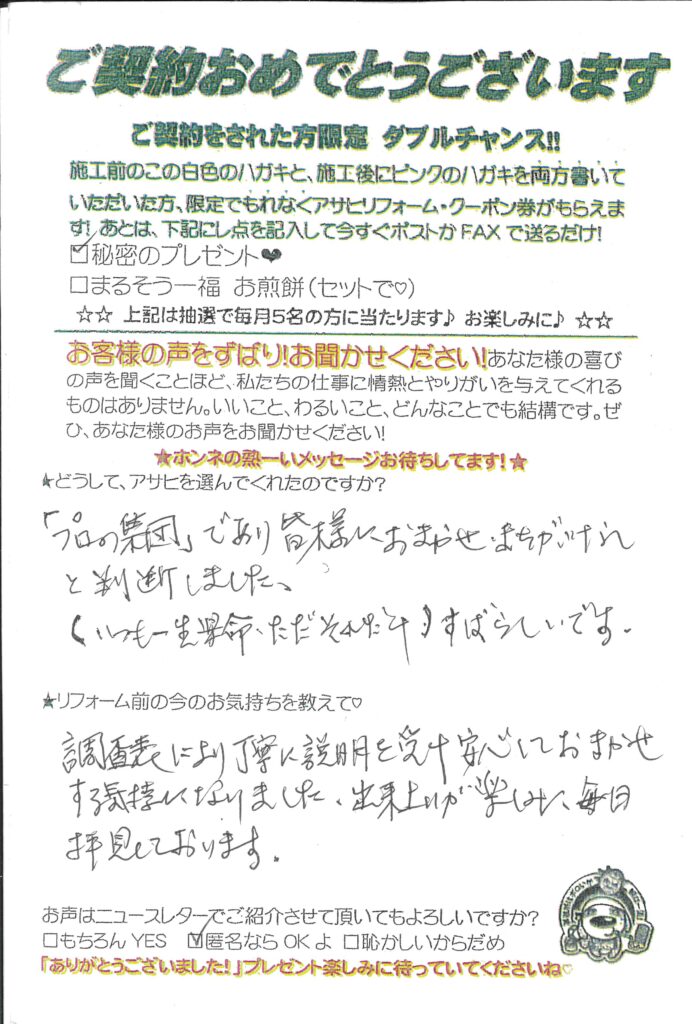 ご契約おめでとうございます
ご契約をされた方限定 ダブルチャンス!!
施工前のこの白色のハガキと、施工後にピンクのハガキを両方書いて
いただいた方、限定でもれなくアサヒリフォーム・クーポン券がもらえま
す! あとは、下記にレ点を記入して今すぐポストかFAXで送るだけ!
☑秘密のプレゼント♥
□まるそう一福 お煎餅(セットで♡)
☆☆ 上記は抽選で毎月5名の方に当たります♪ お楽しみに♪ ☆☆
お客様の声をずばり!お聞かせください!あなた様の喜び
の声を聞くことほど、私たちの仕事に情熱とやりがいを与えてくれる
ものはありません。いいこと、わるいこと、どんなことでも結構です。ぜ
ひ、あなた様のお声をお聞かせください!
★ホンネの熱ーいメッセージお待ちしてます!★
★どうして、アサヒを選んでくれたのですか?
「プロの集団」であり皆様におまかせ、まちがいけれ
と判断しました。
(いつも一生懸命、ただそれだけ)すばらしいです。
★リフォーム前の今のお気持ちを教えて♡
調査表により丁寧に説明を受け安心しておまかせ
する気持になりました、出来上りが楽しみに、毎日
拝見しております。
お声はニュースレターでご紹介させて頂いてもよろしいですか?
□もちろんYES ☑匿名ならOKよ □恥かしいからだめ
「ありがとうございました!」プレゼント楽しみに待っていてくださいね♡